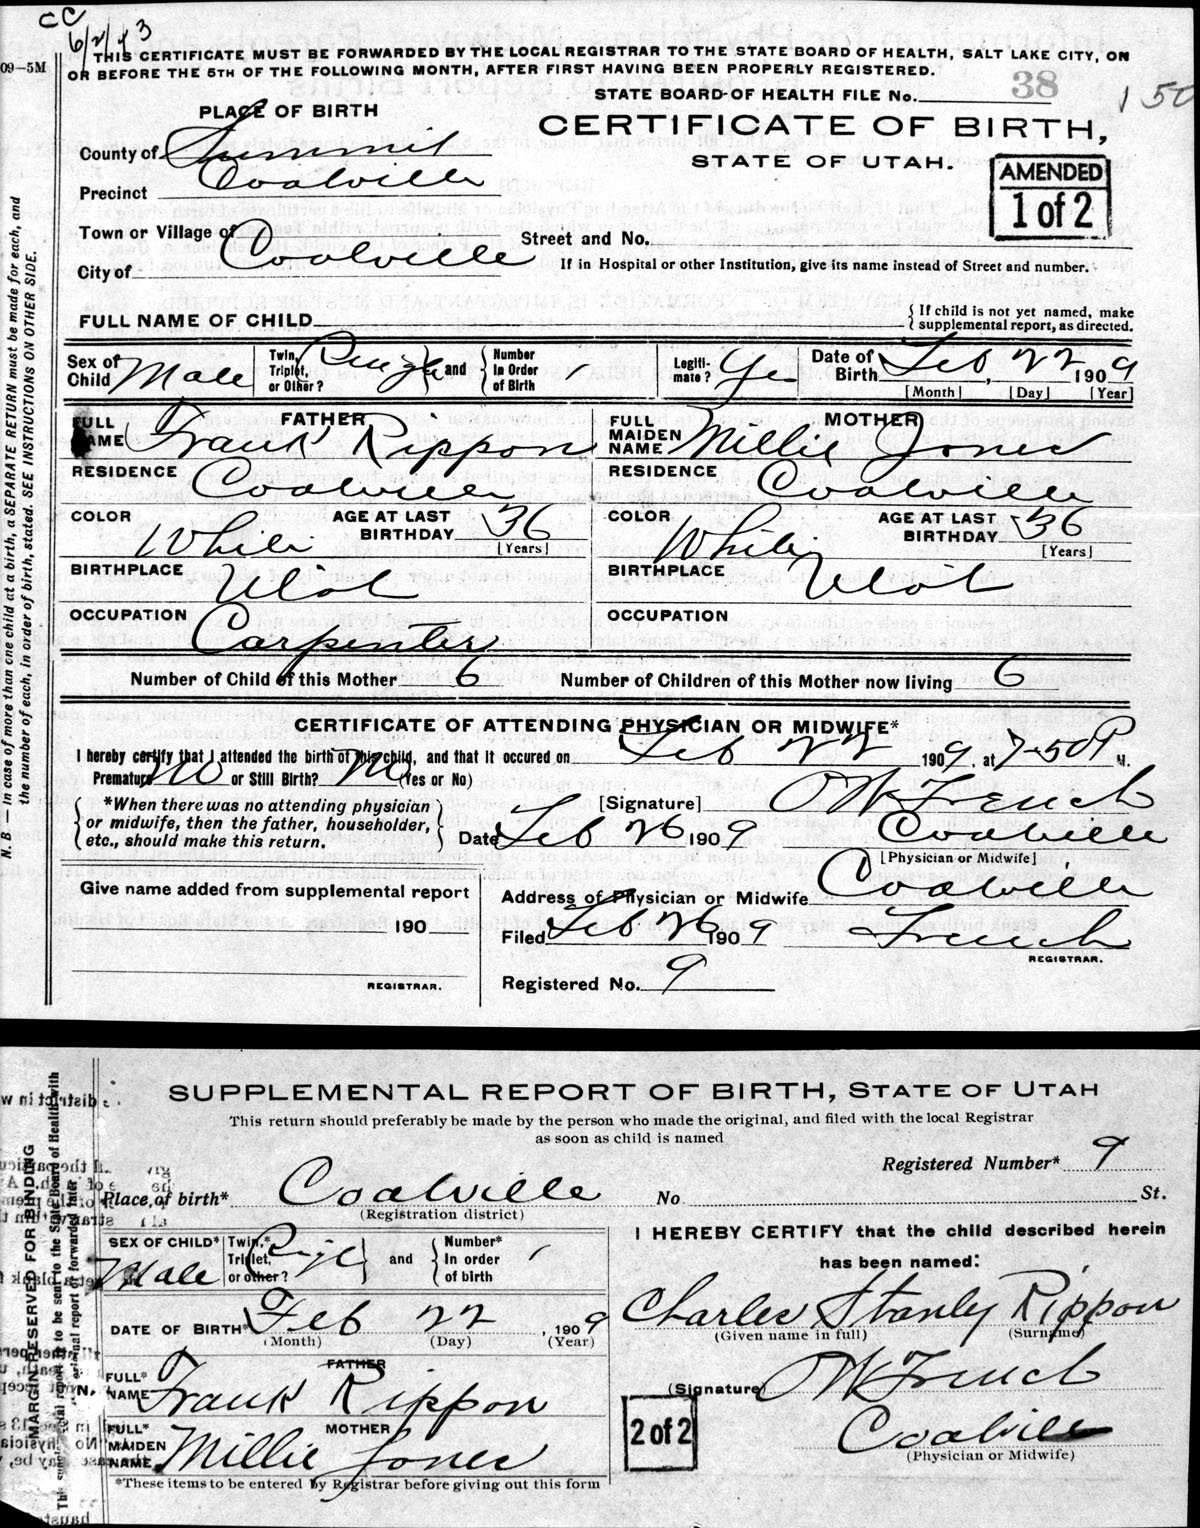 CC
6/2/43
THIS CERTIFICATE MUST BE FORWARDED BY THE LOCAL REGISTRAR TO THE STATE BOARD OF HEALTH, SALT LAKE CITY, ON
OR BEFORE THE 5TH OF THE FOLLOWING MONTH, AFTER FIRST HAVING BEEN PROPERLY REGISTERED.
09-5M
STATE BOARD OF HEALTH FILE No. 38
150
PLACE OF BIRTH
CERTIFICATE OF BIRTH,
STATE OF UTAH.
AMENDED
1 of 2
County of Summit
Precinct Coalville
Town or Village of Coalville
City of
Street and No.
If in Hospital or other Institution, give its name instead of Street and number.
FULL NAME OF CHILD
{If child is not yet named, make
supplemental report, as directed.
Sex of Child Male
Twin, Triplet, or Other? Single and {Number In Order of Birth 1
Legitimate? Yes
Date of Birth Feb, 22 1909
[Month] [Day] [Year]
FATHER
FULL NAME Frank Rippon
MOTHER
FULL MAIDEN NAME Millie Jones
RESIDENCE Coalville
RESIDENCE Coalville
COLOR White AGE AT LAST BIRTHDAY 36 [Years]
COLOR White AGE AT LAST BIRTHDAY 36 [Years]
BIRTHPLACE Utah
BIRTHPLACE Utah
OCCUPATION Carpenter
OCCUPATION
Number of Child of this Mother 6 Number of Children of this Mother now living 6
CERTIFICATE OF ATTENDING PHYSICIAN OR MIDWIFE*
I hereby certify that I attended the birth of this child, and that it occured on Feb 22 1909, at 7-50 P M.
Premature No or Still Birth? No (Yes or No)
{*When there was no attending physician
or midwife, then the father, householder,
etc., should make this return.}
[Signature] OW French
Date Feb 26 1909 Coalville
[Physician or Midwife]
Give name added from supplemental report
190
REGISTRAR.
Address of Physician or Midwife Coalville
Filed Feb 26 1909 French
REGISTRAR.
Registered No. 9
N. B. — In case of more than one child at a birth, a SEPARATE RETURN must be made for each, and
the number of each, in order of birth, stated. SEE INSTRUCTIONS ON OTHER SIDE.
SUPPLEMENTAL REPORT OF BIRTH, STATE OF UTAH
This return should preferably be made by the person who made the original, and filed with the local Registrar
as soon as child is named
Registered Number* 9
Place of birth* Coalville No St.
(Registration district)
SEX OF CHILD* Male
Twin,* Triplet, or other? Single and {Number* In order of birth 1
I HEREBY CERTIFY that the child described herein
has been named:
DATE OF BIRTH* Feb 22, 1909
(Month) (Day) (Year)
Charles Stanly Rippon
(Given name in full) (Surname)
FATHER
FULL* NAME Frank Rippon
(Signature) OW French
MOTHER
FULL* MAIDEN NAME Millie Jones
2 of 2
Coalville
(Physician or Midwife)
*These items to be entered by Registrar before giving out this form
MARGIN RESERVED FOR BINDING